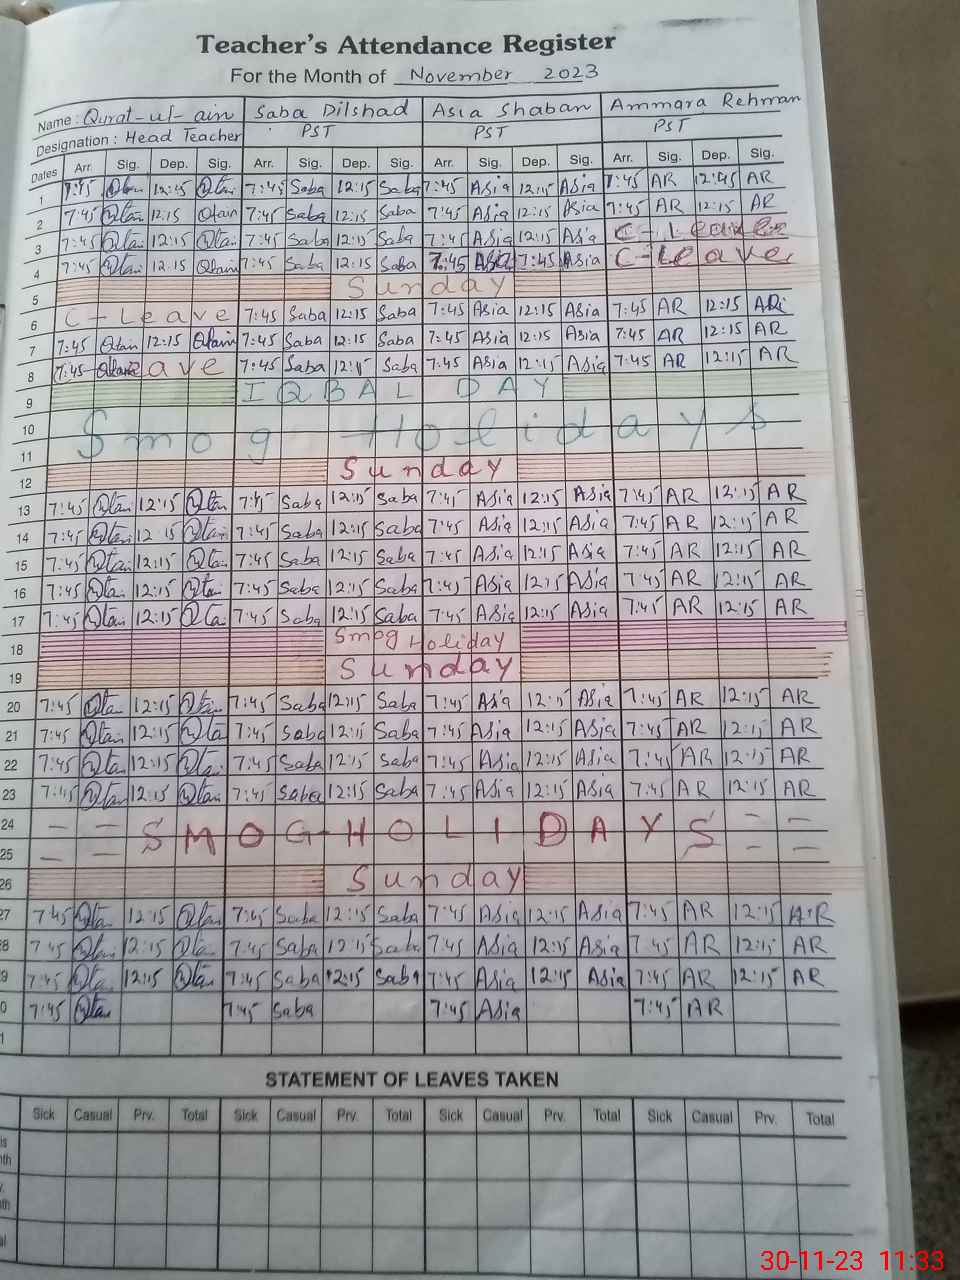 Teacher's Attendance Register
For the Month of November 2023
Name : Qurat-ul-ain Saba Dilshad Asia Shaban Ammara Rehman
Designation : Head Teacher PST PST PST
Dates Arr. Sig. Dep. Sig. Arr. Sig. Dep. Sig. Arr. Sig. Dep. Sig. Arr. Sig. Dep. Sig.
1 7:45 Qtain 12:45 Qtain 7:45 Saba 12:15 Saba 7:45 Asia 12:15 Asia 7:45 AR 12:45 AR
2 7:45 Qtain 12:15 Qtain 7:45 Saba 12:15 Saba 7:45 Asia 12:15 Asia 7:45 AR 12:15 AR
3 7:45 Qtain 12:15 Qtain 7:45 Saba 12:15 Saba 7:45 Asia 12:15 Asia C-Leave
4 7:45 Qtain 12:15 Qtain 7:45 Saba 12:15 Saba 7:45 Asia 7:45 Asia C-Leave
5 Sunday
6 C-Leave 7:45 Saba 12:15 Saba 7:45 Asia 12:15 Asia 7:45 AR 12:15 AR
7 7:45 Qtain 12:15 Qtain 7:45 Saba 12:15 Saba 7:45 Asia 12:15 Asia 7:45 AR 12:15 AR
8 7:45 ave 7:45 Saba 12:15 Saba 7:45 Asia 12:15 Asia 7:45 AR 12:15 AR
9 IQBAL DAY
10 Smog Holidays
11
12 Sunday
13 7:45 Qtain 12:15 Qtain 7:45 Saba 12:15 Saba 7:45 Asia 12:15 Asia 7:45 AR 12:15 AR
14 7:45 Qtain 12:15 Qtain 7:45 Saba 12:15 Saba 7:45 Asia 12:15 Asia 7:45 AR 12:15 AR
15 7:45 Qtain 12:15 Qtain 7:45 Saba 12:15 Saba 7:45 Asia 12:15 Asia 7:45 AR 12:15 AR
16 7:45 Qtain 12:15 Qtain 7:45 Saba 12:15 Saba 7:45 Asia 12:15 Asia 7:45 AR 12:15 AR
17 7:45 Qtain 12:15 Qtain 7:45 Saba 12:15 Saba 7:45 Asia 12:15 Asia 7:45 AR 12:15 AR
18 Smog Holiday
19 Sunday
20 7:45 Qtain 12:15 Qtain 7:45 Saba 12:15 Saba 7:45 Asia 12:15 Asia 7:45 AR 12:15 AR
21 7:45 Qtain 12:15 Qtain 7:45 Saba 12:15 Saba 7:45 Asia 12:15 Asia 7:45 AR 12:15 AR
22 7:45 Qtain 12:15 Qtain 7:45 Saba 12:15 Saba 7:45 Asia 12:15 Asia 7:45 AR 12:15 AR
23 7:45 Qtain 12:15 Qtain 7:45 Saba 12:15 Saba 7:45 Asia 12:15 Asia 7:45 AR 12:15 AR
24 - - SMOG-HOLIDAYS - -
25 - - - -
26 Sunday
27 7:45 Qtain 12:15 Qtain 7:45 Saba 12:15 Saba 7:45 Asia 12:15 Asia 7:45 AR 12:15 A.R
8 7:45 Qtain 12:15 Qtain 7:45 Saba 12:15 Saba 7:45 Asia 12:15 Asia 7:45 AR 12:15 AR
9 7:45 Qtain 12:15 Qtain 7:45 Saba 12:15 Saba 7:45 Asia 12:15 Asia 7:45 AR 12:15 AR
0 7:45 Qtain 7:45 Saba 7:45 Asia 7:45 AR
1
STATEMENT OF LEAVES TAKEN
Sick Casual Prv. Total Sick Casual Prv. Total Sick Casual Prv. Total Sick Casual Prv. Total
30-11-23 11:33